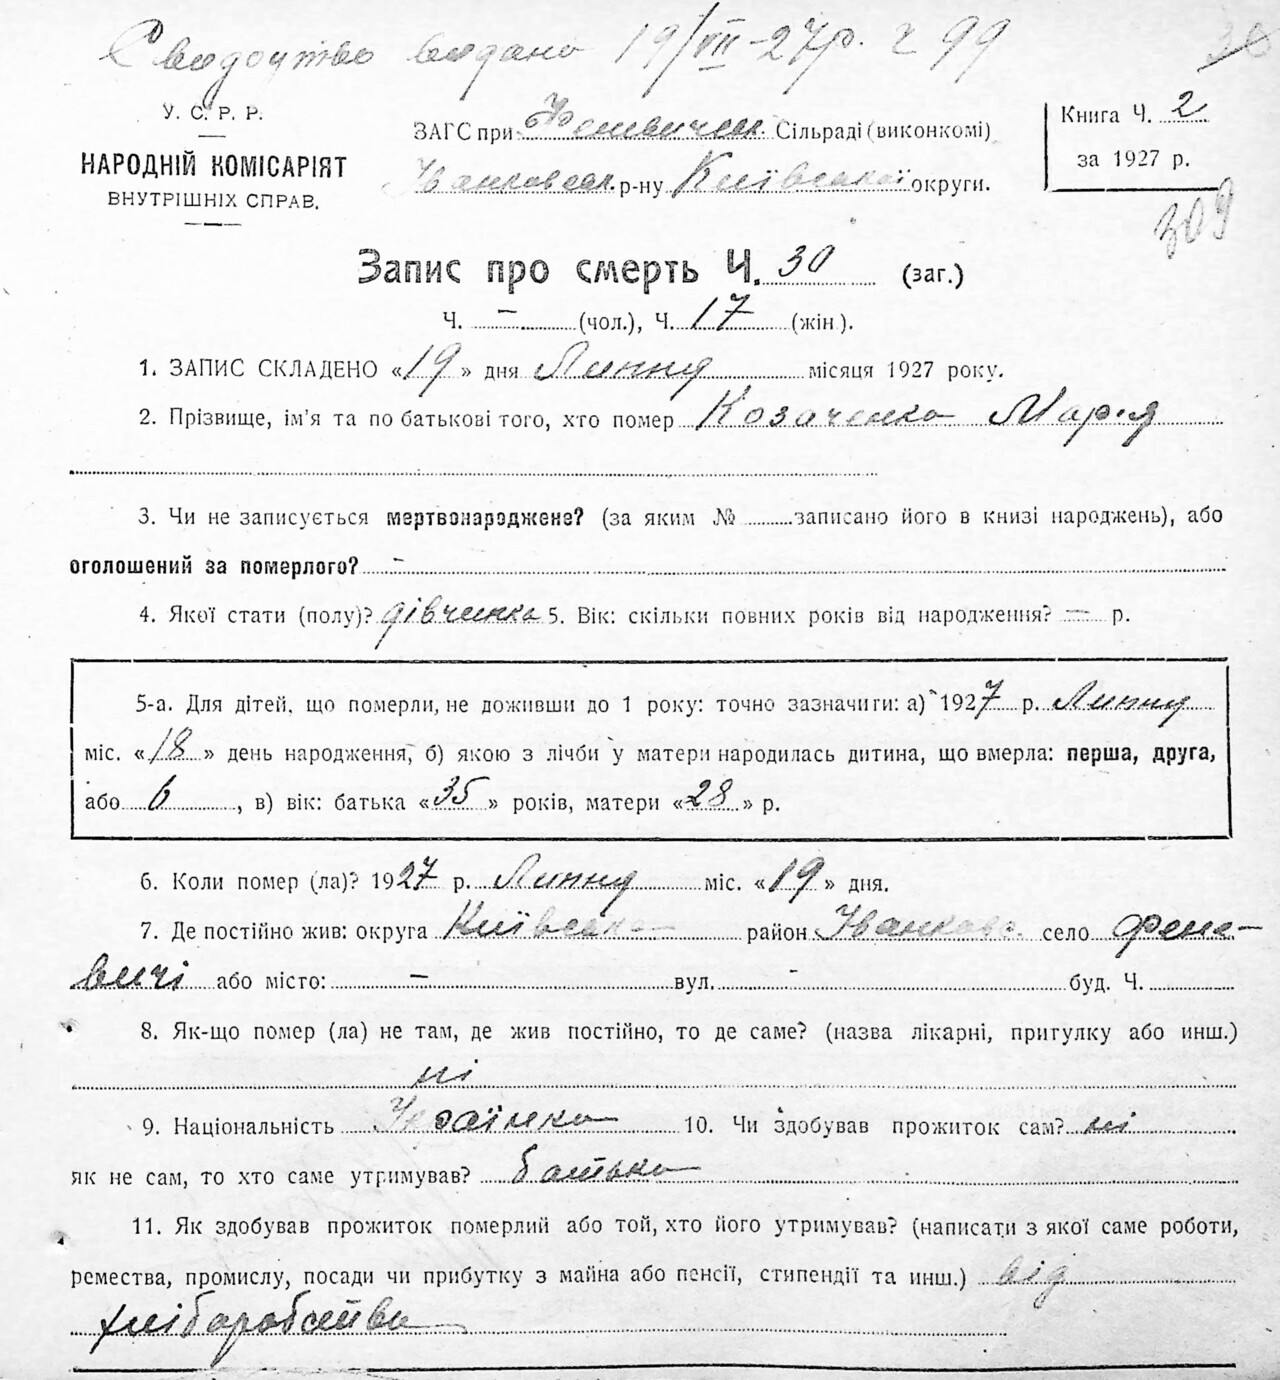 Свидоцтво видано 19/VII-27р. ч 99
30
У. С. Р. Р.
НАРОДНІЙ КОМІСАРІЯТ
ВНУТРІШНІХ СПРАВ.
ЗАГС при Феневичск. Сільраді (виконкомі)
Іванковськ. р-ну Київської округи.
Книга Ч. 2
за 1927 р.
309
Запис про смерть Ч. 30 (заг.)
Ч. – (чол.), Ч. 17 (жін.).
1. ЗАПИС СКЛАДЕНО «19» дня Липня місяця 1927 року.
2. Прізвище, ім'я та по батькові того, хто помер Козаченко Марія
3. Чи не записується мертвонароджене? (за яким № записано його в книзі народжень), або
оголошений за померлого? –
4. Якої стати (полу)? дівчинка 5. Вік: скільки повних років від народження? – р.
5-а. Для дітей, що померли, не доживши до 1 року: точно зазначити: а) 1927 р. Липня
міс. «18» день народження, б) якою з лічби у матери народилась дитина, що вмерла: перша, друга,
або 6, в) вік: батька «35» років, матери «28» р.
6. Коли помер (ла)? 1927 р. Липня міс. «19» дня.
7. Де постійно жив: округа Київська район Іванковс. село Фене-
вичі або місто: – вул. - буд. Ч.
8. Як-що помер (ла) не там, де жив постійно, то де саме? (назва лікарні, пригулку або инш.)
ні
9. Національність Українка 10. Чи здобував прожиток сам? ні
як не сам, то хто саме утримував? батько
11. Як здобував прожиток померлий або той, хто його утримував? (написати з якої саме роботи,
ремества, промислу, посади чи прибутку з майна або пенсії, стипендії та инш.) від
хліборобства